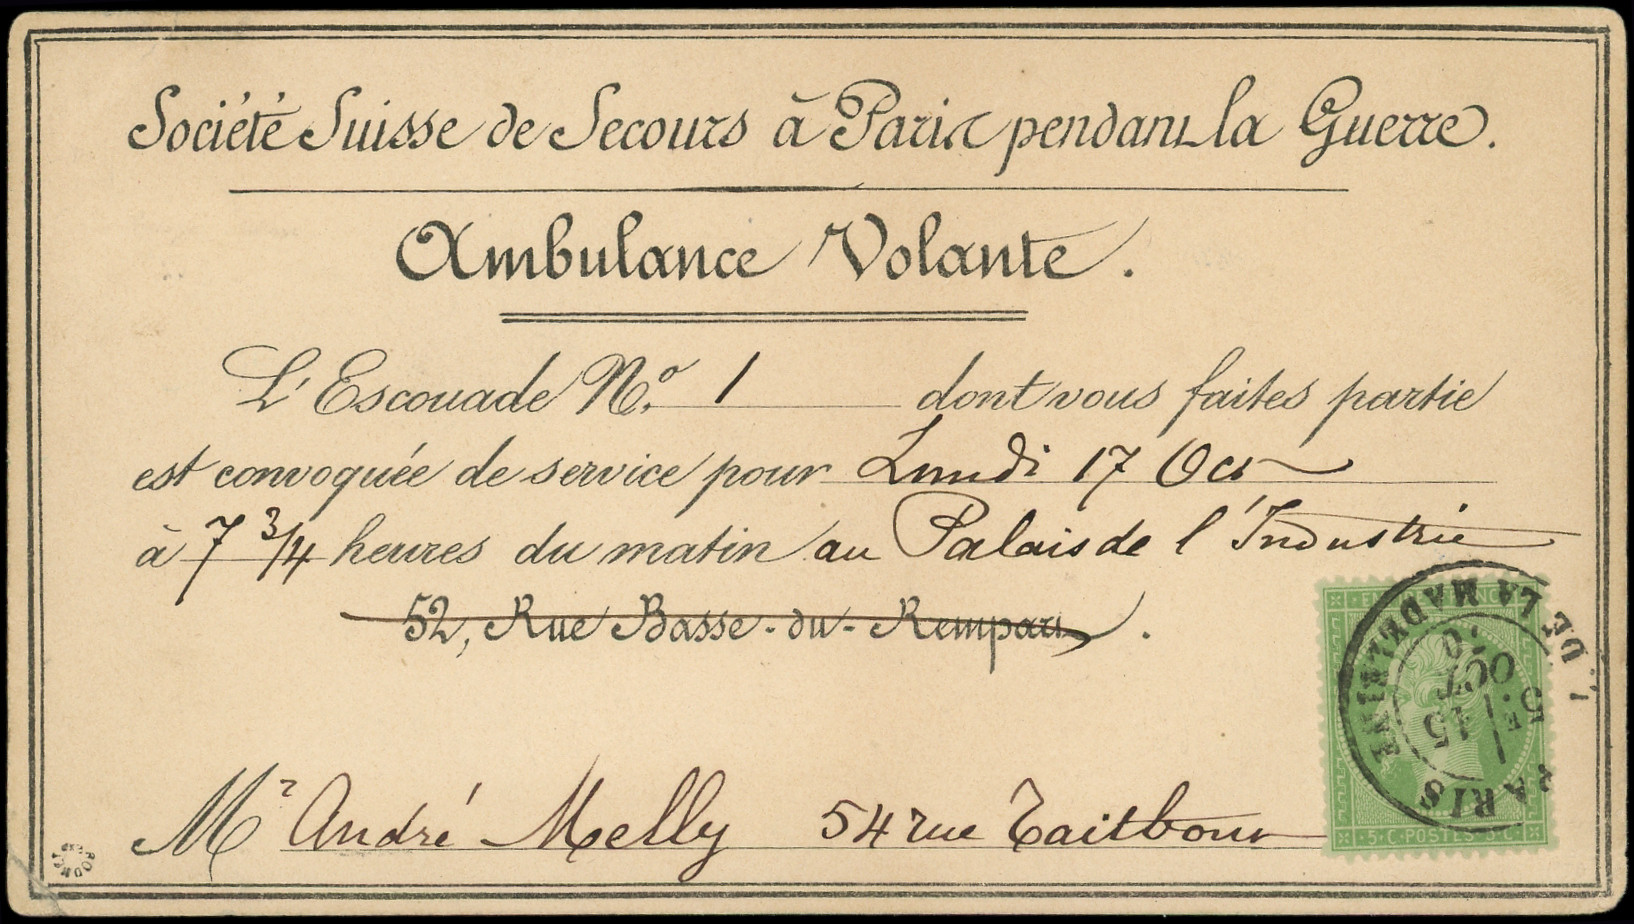 Société Suisse de Secours à Paris pendant la Guerre.
Ambulance Volante.
L'Escouade No. 1 dont vous faites partie
est convoquée de service pour Lundi 17 Oct
à 7 3/4 heures du matin au Palais de l'Industrie
52, Rue Basse-du-Rempart.
Mr André Melly 54 rue Taitbout
PARIS DE LA MADELEINE
5E
15
OCT.
70
5·C POSTES 5·C
ROUMET